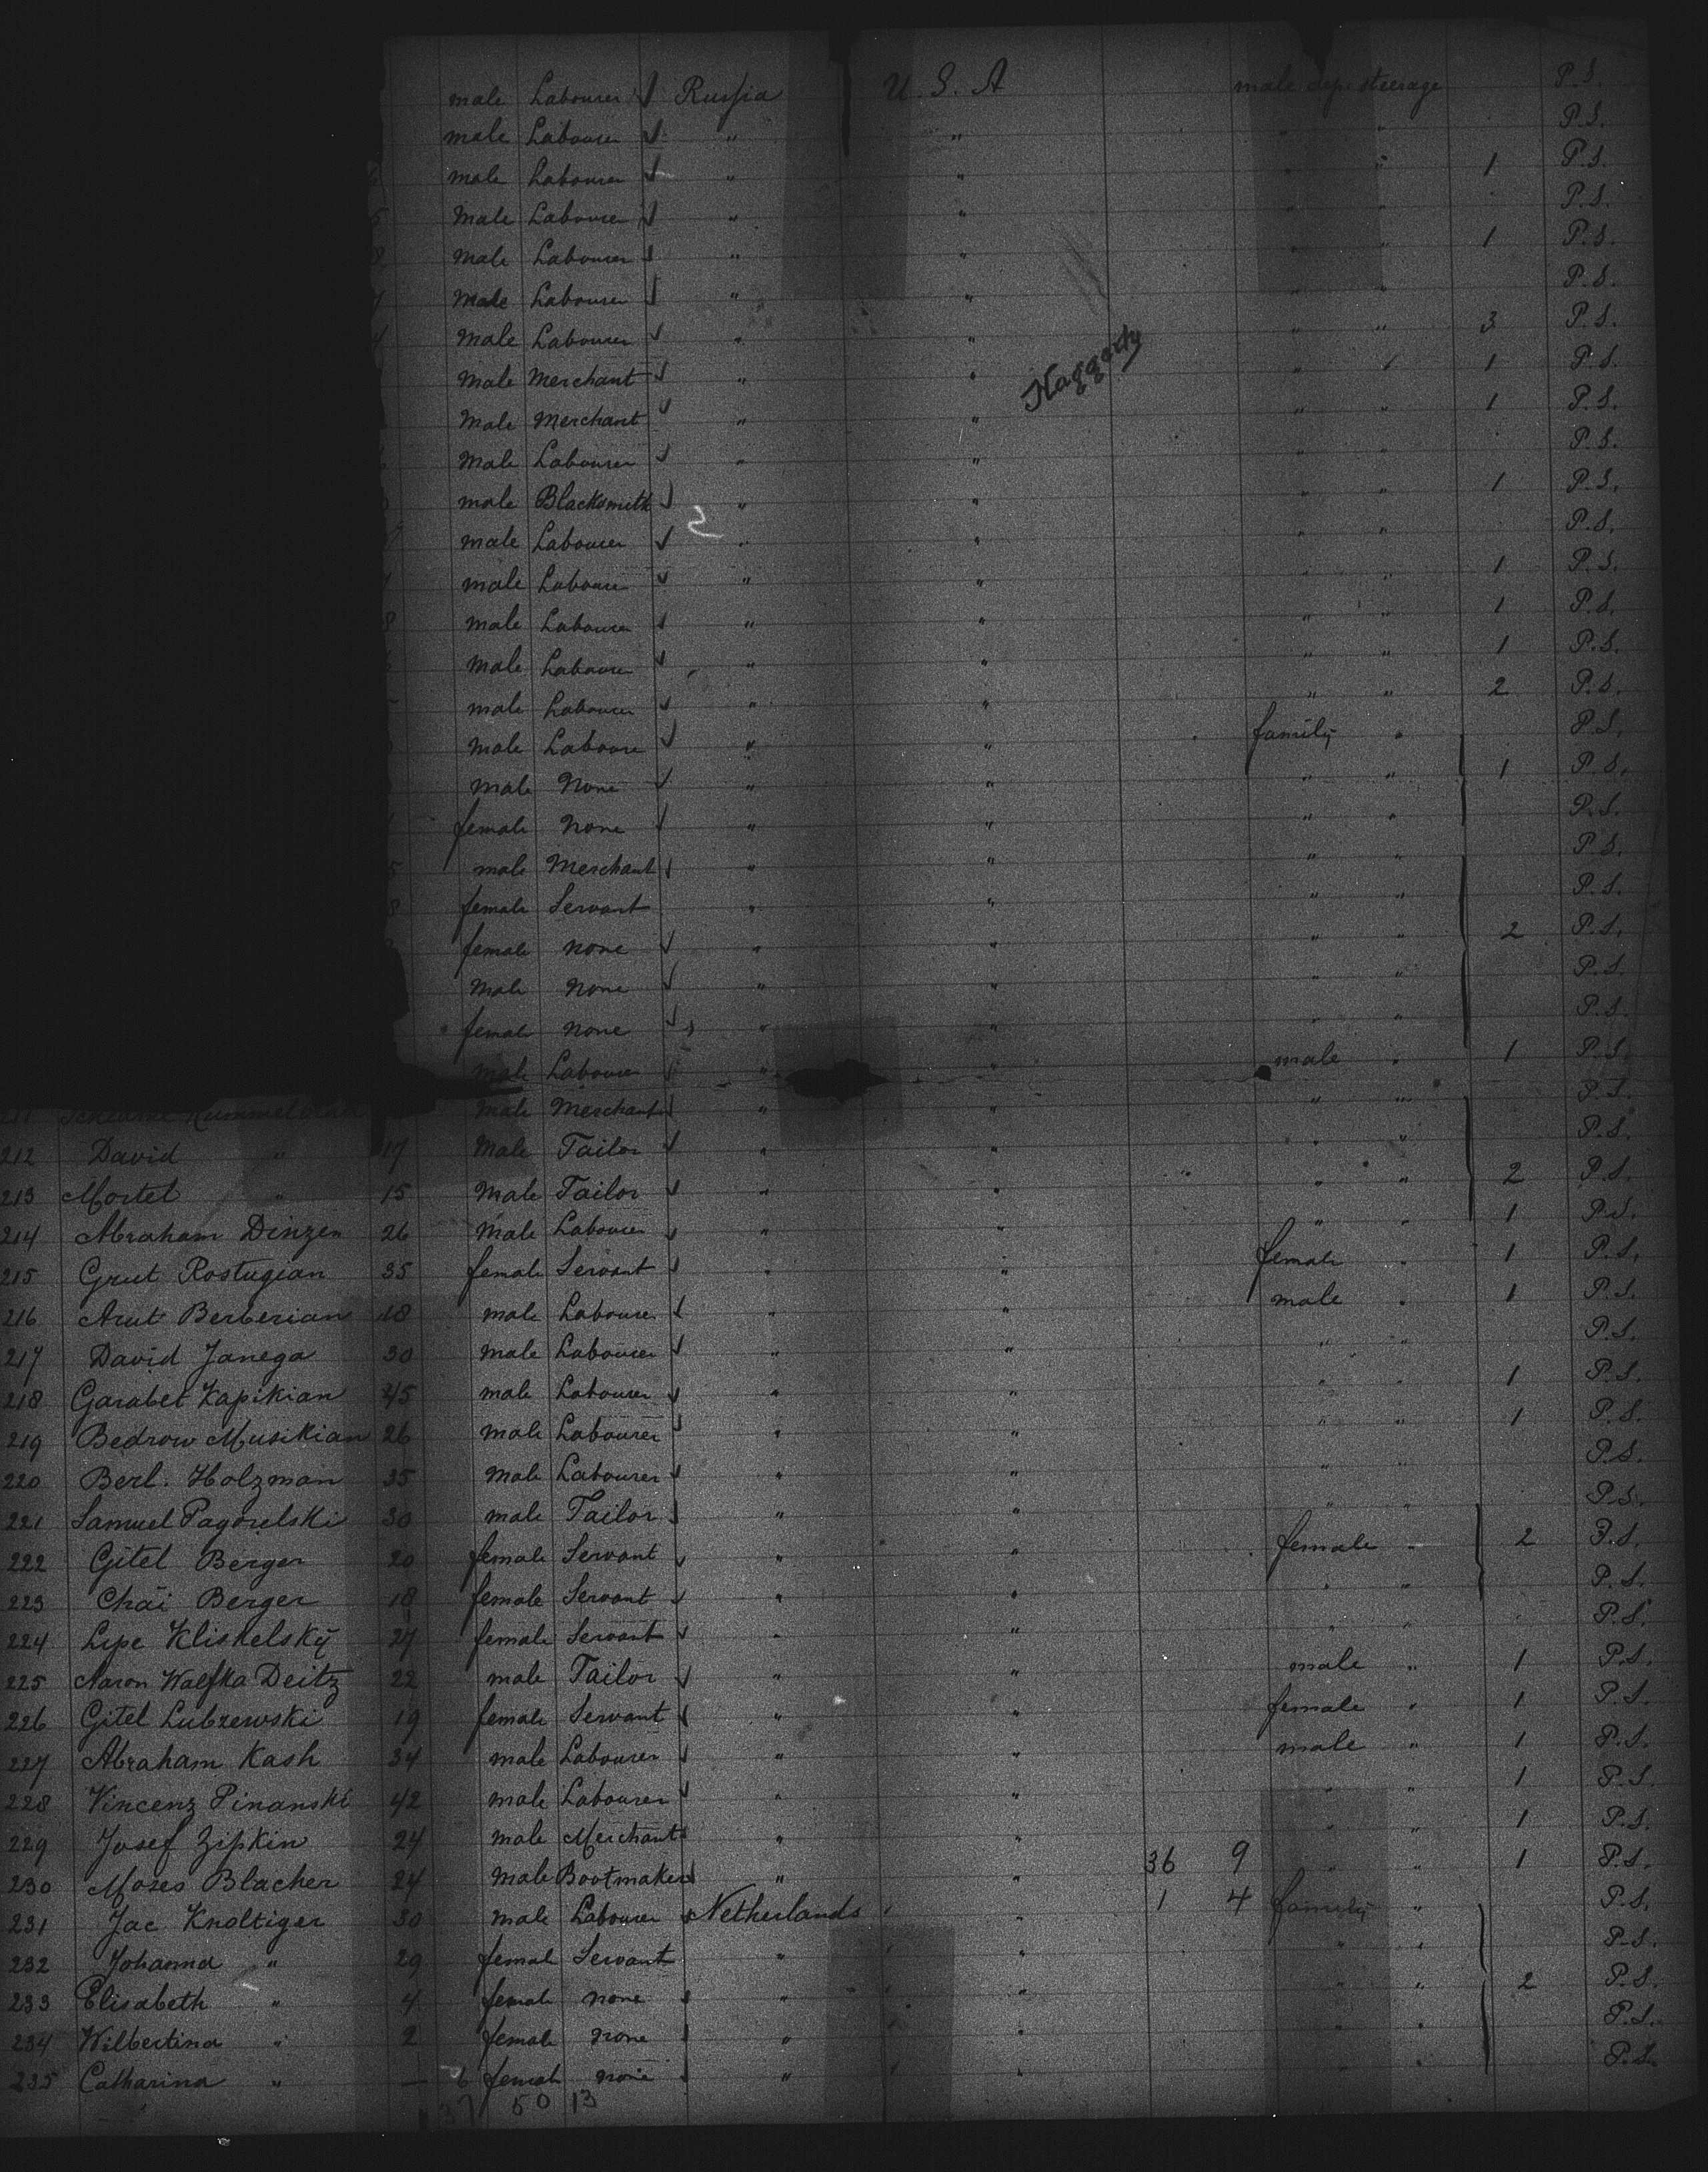 male Labourer Russia U. S. A male dep. steerage P.S.
male Labourer " " " " P.S.
male Labourer " " " " 1 P.S.
male Labourer " " " " P.S.
male Labourer " " " " 1 P.S.
male Labourer " " " " P.S.
male Labourer " " " " 3 P.S.
Haggerty
male Merchant " " " " 1 P.S.
male Merchant " " " " 1 P.S.
male Labourer " " " " P.S.
male Blacksmith " " " " 1 P.S.
2
male Labourer " " " " P.S.
male Labourer " " " " 1 P.S.
male Labourer " " " " 1 P.S.
male Labourer " " " " 1 P.S.
male Labourer " " " " 2 P.S.
male Labourer " " family " P.S.
male None " " " " 1 P.S.
female None " " " " P.S.
male Merchant " " " " P.S.
female Servant " " " " P.S.
female none " " " " 2 P.S.
male none " " " " P.S.
female none " " " " P.S.
male Labourer " " male " 1 P.S.
male Merchant " " " " P.S.
212 David " 17 male Tailor " " " " P.S.
213 Mortel " 15 male Tailor " " " " 2 P.S.
214 Abraham Dinzen 26 male Labourer " " " " 1 P.S.
215 Grut Rostugian 35 female Servant " " female " 1 P.S.
216 Arut Berberian 18 male Labourer " " male " 1 P.S.
217 David Janega 30 male Labourer " " " " P.S.
218 Garabet Kapikian 45 male Labourer " " " " 1 P.S.
219 Bedrow Musikian 26 male Labourer " " " " 1 P.S.
220 Berl. Holzman 35 male Labourer " " " " P.S.
221 Samuel Pagorelski 30 male Tailor " " " " P.S.
222 Gitel Berger 20 female Servant " " female " 2 P.S.
223 Chai Berger 18 female Servant " " " " P.S.
224 Lipe Kliskelsky 27 female Servant " " " " P.S.
225 Aaron Walfka Deitz 22 male Tailor " " male " 1 P.S.
226 Gitel Lubzewski 19 female Servant " " female " 1 P.S.
227 Abraham Kash 34 male Labourer " " male " 1 P.S.
228 Vincenz Pinanski 42 male Labourer " " " " 1 P.S.
229 Josef Zipkin 24 male Merchant " " " " 1 P.S.
230 Moses Blacher 24 male Bootmaker " " 36 9 " " 1 P.S.
231 Jac Knoltiger 30 male Labourer Netherlands " 1 4 family " P.S.
232 Johanna " 29 female Servant " " " " P.S.
233 Elisabeth " 4 female none " " " " 2 P.S.
234 Wilbertina " 2 female none " " " " P.S.
235 Catharina " — 6 female none " " " P.S.
37 50 13